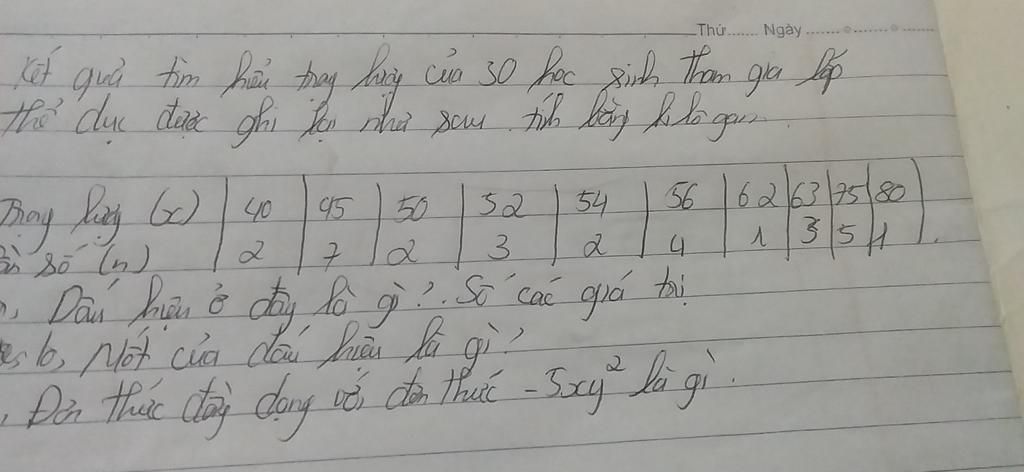 Thứ....... Ngày .......................
Kết quả tìm hiểu trọng lượng của 30 học sinh tham gia lớp
thể dục được ghi lại như sau tính bằng ki lô gam
Trọng lượng (x) | 40 | 45 | 50 | 52 | 54 | 56 | 62 | 63 | 75 | 80
số (n) | 2 | 7 | 2 | 3 | 2 | 4 | 1 | 3 | 5 | 1
, Dấu hiệu ở đây là gì?. Số các giá trị
b, Mốt của dấu hiệu là gì?
, Đơn thức đồng dạng với đơn thức -5xy² là gì.